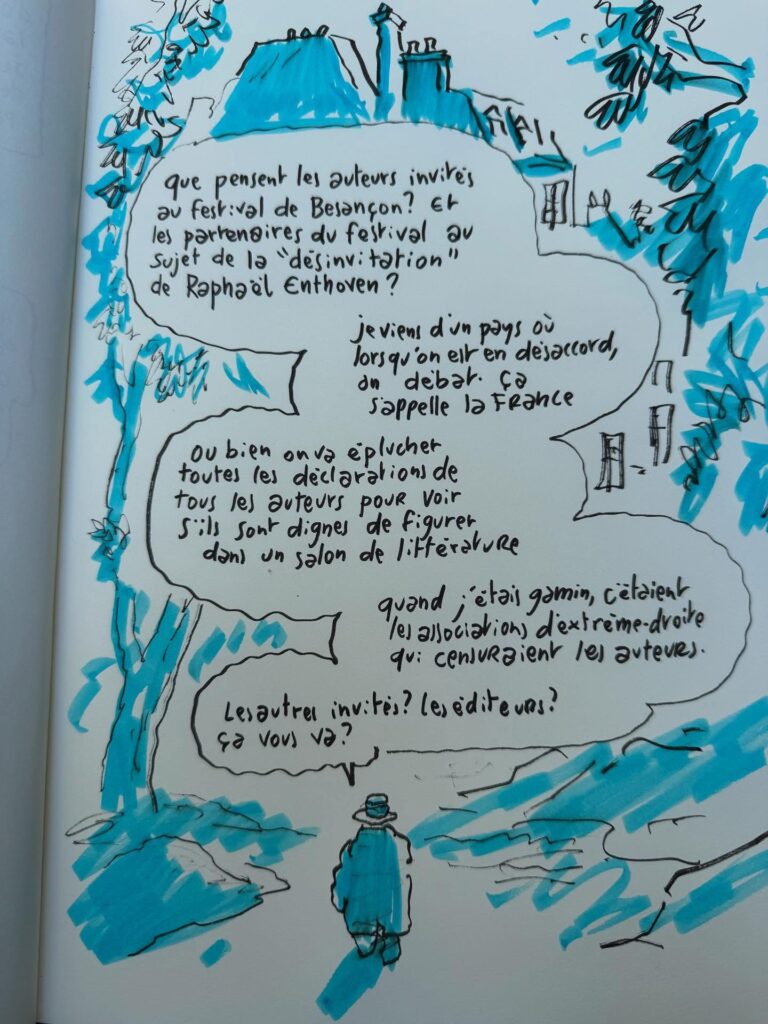 que pensent les auteurs invités
au festival de Besançon? Et
les partenaires du festival au
sujet de la "désinvitation"
de Raphaël Enthoven?
je viens d'un pays où
lorsqu'on est en désaccord,
on débat. ça
s'appelle la France
ou bien on va éplucher
toutes les déclarations de
tous les auteurs pour voir
s'ils sont dignes de figurer
dans un salon de littérature
quand j'étais gamin, c'étaient
les associations d'extrême-droite
qui censuraient les auteurs.
Les autres invités? Les éditeurs?
ça vous va?